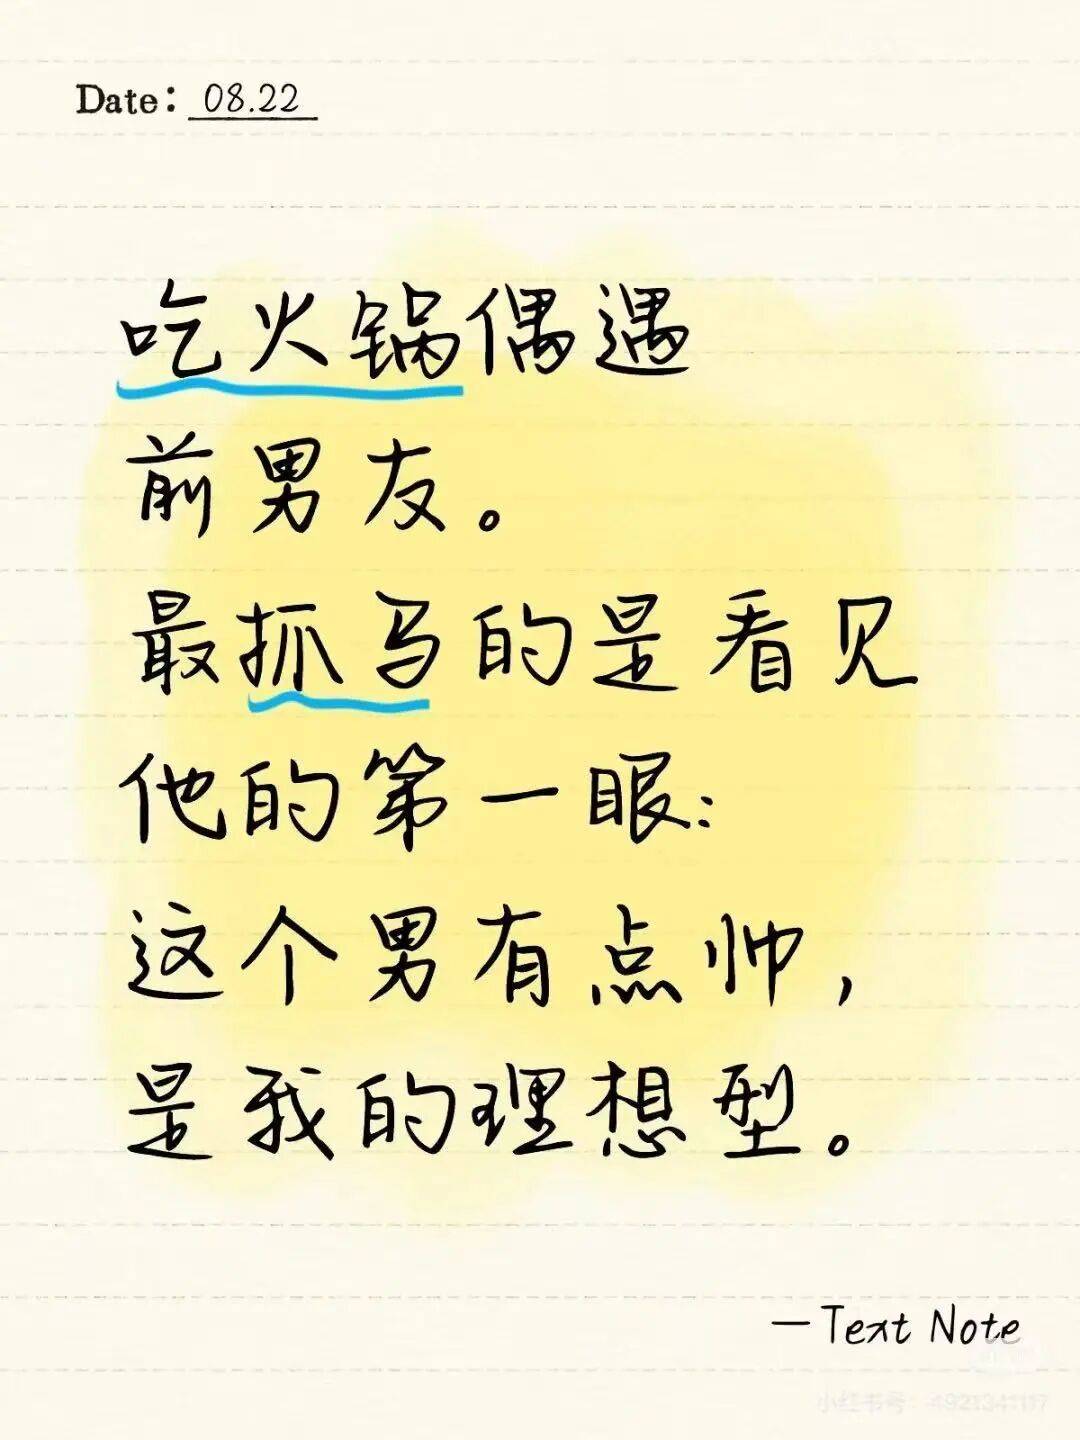 Date: 08.22
吃火锅偶遇
前男友。
最抓马的是看见
他的第一眼:
这个男有点帅,
是我的理想型。
—Text Note
小红书号:4921341117